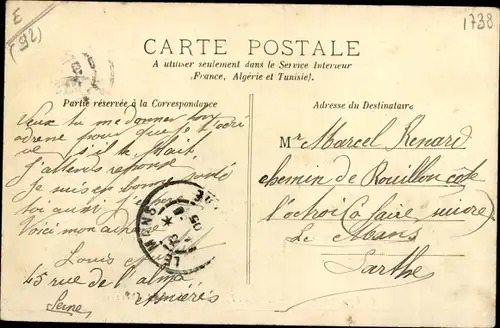 E
(92)
1738
CARTE POSTALE
A utiliser seulement dans le Service Intérieur
(France, Algérie et Tunisie).
Partie réservée à la Correspondance
Adresse du Destinataire
Veux tu me donner ton
adresse pour que je t'écri
ve s'il te plait.
J'attends réponse
Je suis en bonne santé
toi aussi j'
Voici mon adresse
Louis
45 rue de l'alma
Asnières
Seine
LE MANS
05
Mr Marcel Renard
chemin de Rouillon côté
l'octroi (a faire suivre)
Le Mans
Sarthe